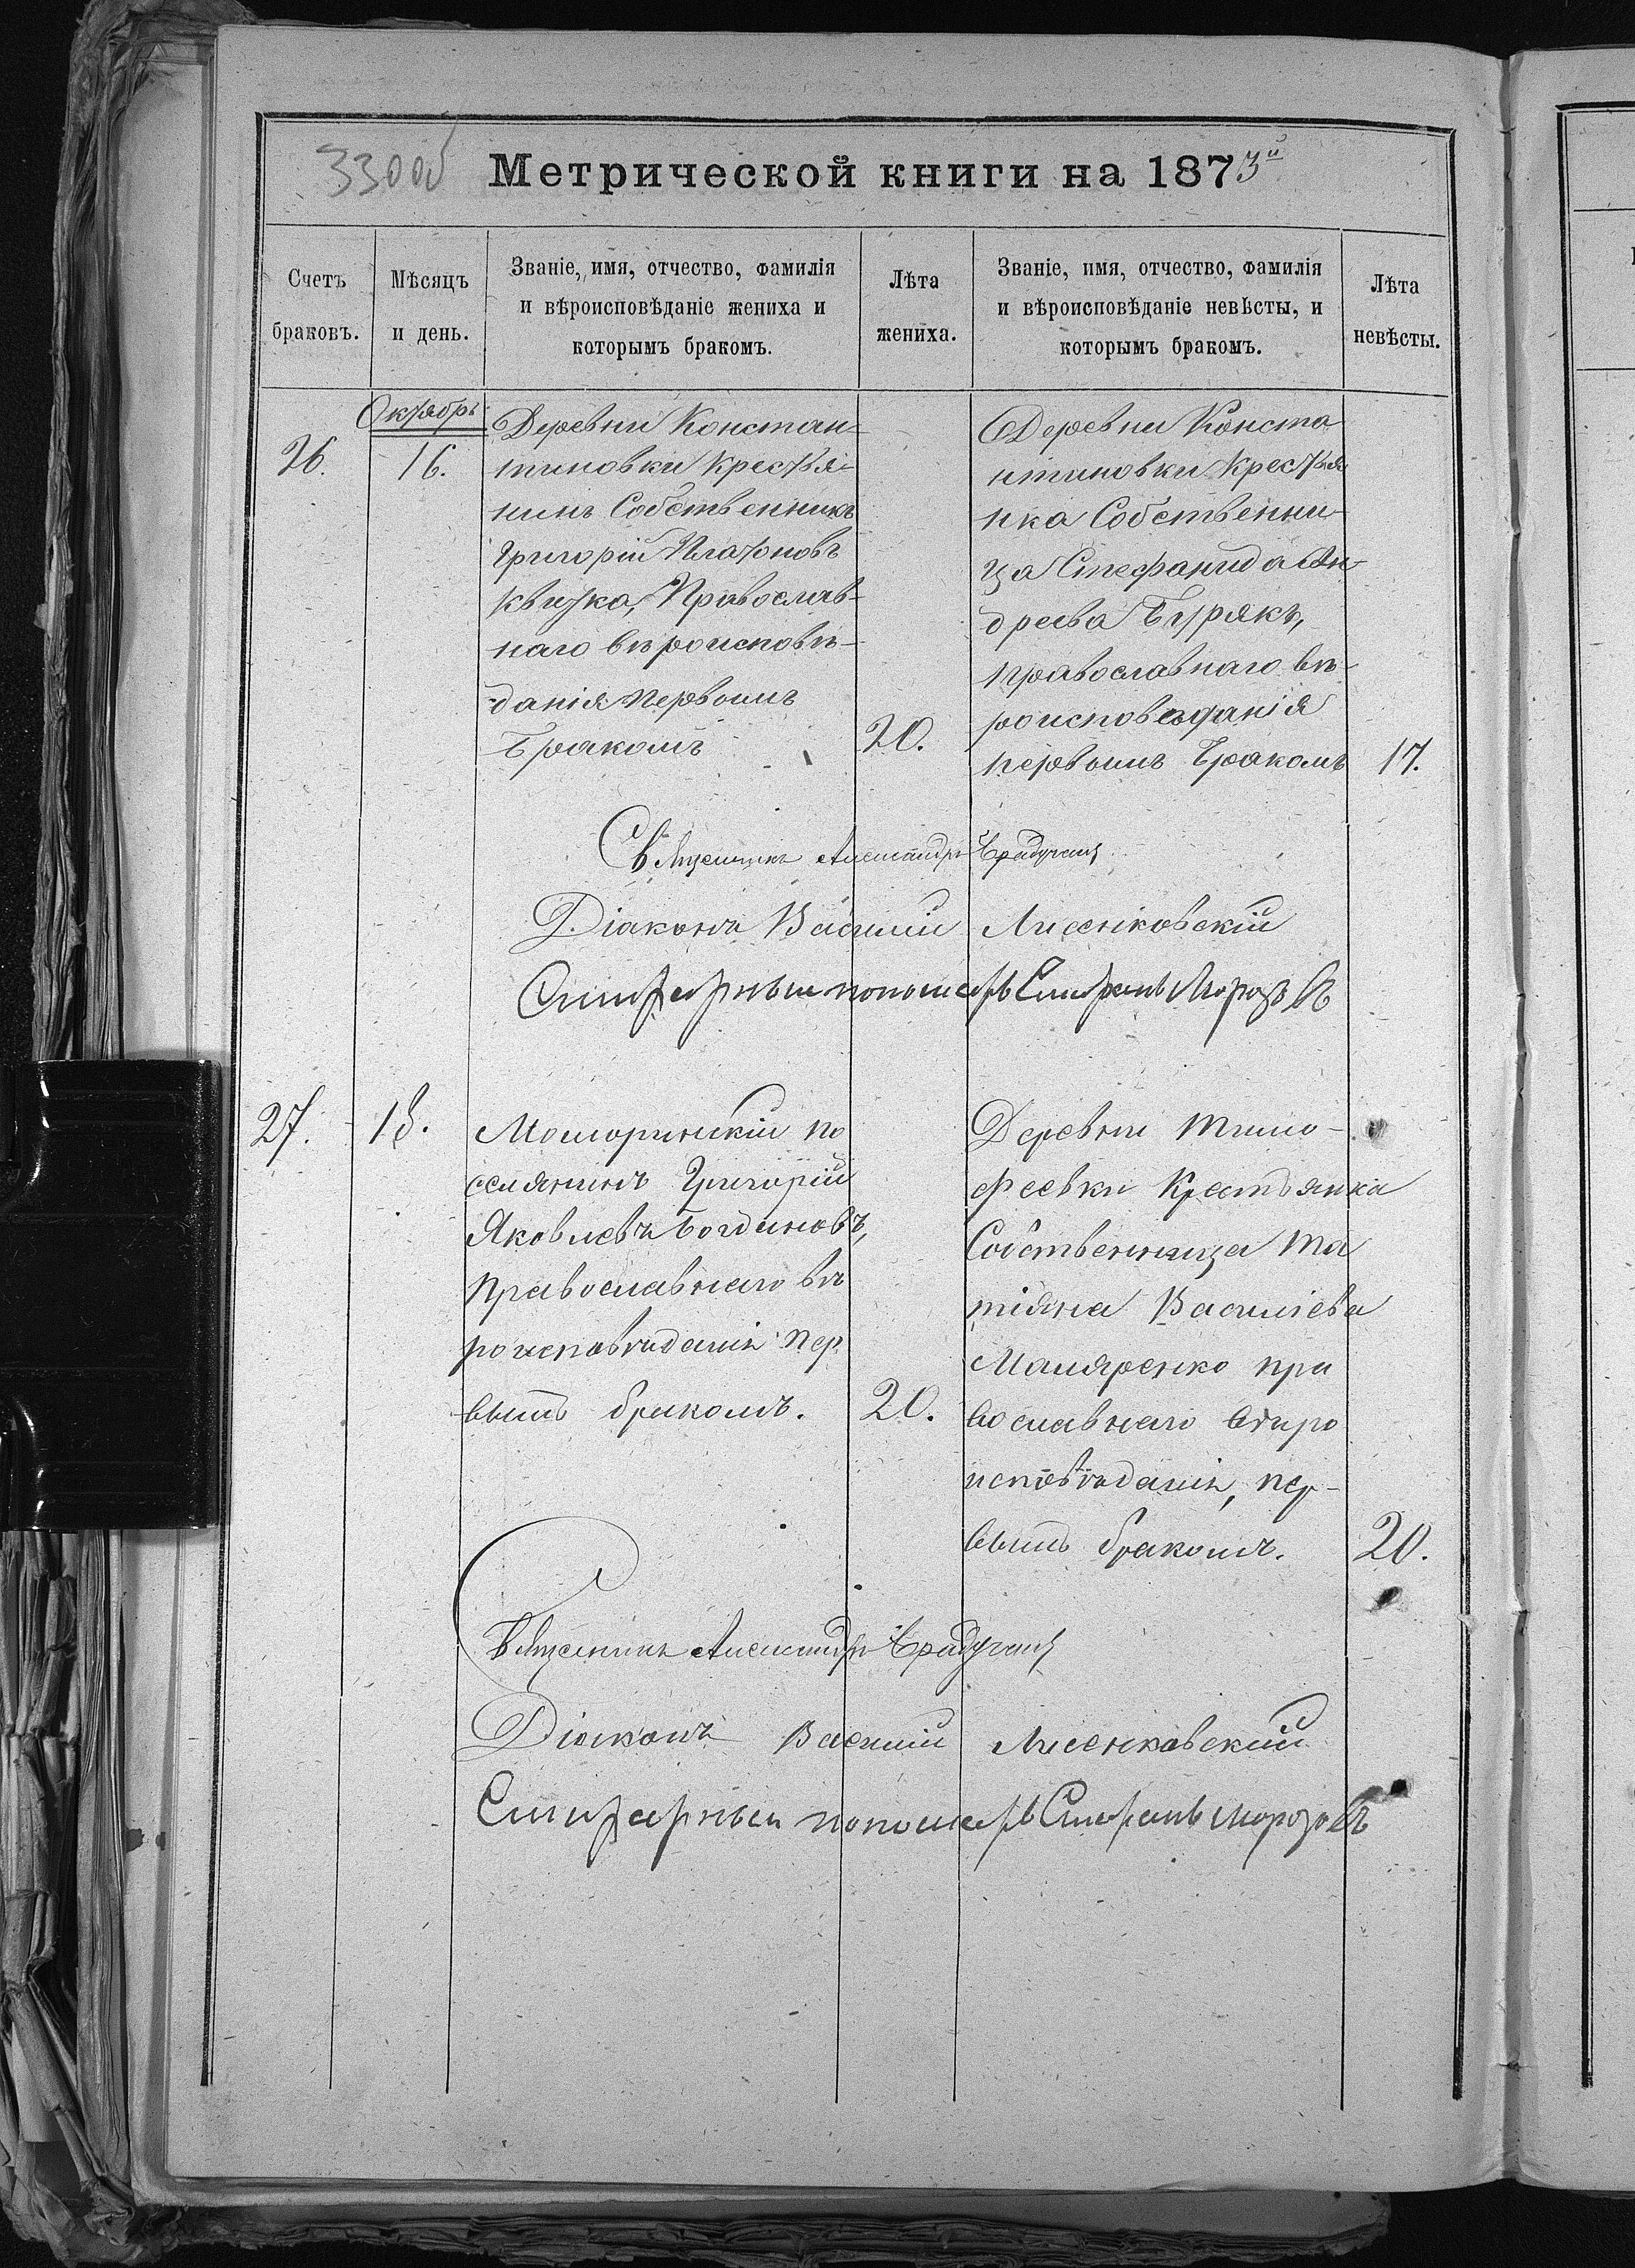 330об
Метрической книги на 1873й
Счетъ браковъ.
Мѣсяцъ и день.
Званіе, имя, отчество, фамилія и вѣроисповѣданіе жениха и которымъ бракомъ.
Лѣта жениха.
Званіе, имя, отчество, фамилія и вѣроисповѣданіе невѣсты, и которымъ бракомъ.
Лѣта невѣсты.
Октябрь
26.
16.
Деревни Констан-
тиновки Крестья-
нинъ Собственникъ
Григорій Платоновъ
Квитка, Православ-
наго вѣроисповѣ-
данія первымъ
бракомъ
20.
Деревни Конста
нтиновки Крестья
нка Собственни-
ца Стефанида Ан-
дреева Бурякъ,
православнаго вѣ-
роисповѣданія
первымъ бракомъ
17.
Священникъ Александръ
Діаконъ Василій Лисенковскій
Сверхштатный пономарь Стефанъ Морозовъ
27.
18.
по
селянинъ Григорій
Яковлевъ Богдановъ,
Православнаго вѣ
роисповѣданія пер
вымъ бракомъ.
20.
Деревни Тимо-
феевки Крестьянка
Собственница Та
тіяна Василіева
Маляренко пра
вославнаго вѣро
исповѣданія, пер-
вымъ бракомъ.
20.
Священникъ Александръ
Діаконъ Василій Лисенковскій
пономарь Стефанъ Морозовъ